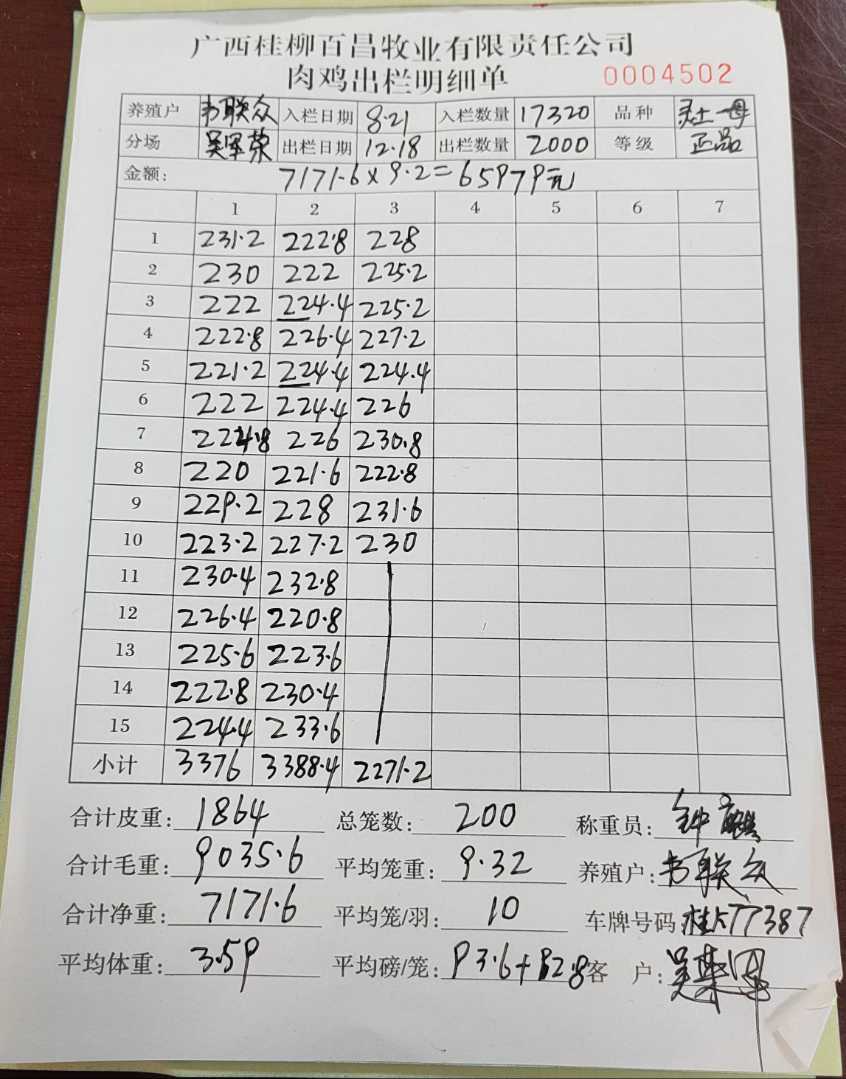 广西桂柳百昌牧业有限责任公司
肉鸡出栏明细单 0004502
养殖户 韦联众 入栏日期 8·21 入栏数量 17320 品种 灵土一母
分场 吴军荣 出栏日期 12·18 出栏数量 2000 等级 正品
金额: 7171·6×9·2=65979元
1 2 3 4 5 6 7
1 231·2 222·8 228
2 230 222 225·2
3 222 224·4 225·2
4 222·8 226·4 227·2
5 221·2 224·4 224·4
6 222 224·4 226
7 224·8 226 230·8
8 220 221·6 222·8
9 229·2 228 231·6
10 223·2 227·2 230
11 230·4 232·8
12 226·4 220·8
13 225·6 223·6
14 222·8 230·4
15 224·4 233·6
小计 3376 3388·4 2271·2
合计皮重: 1864 总笼数: 200 称重员: 钟
合计毛重: 9035·6 平均笼重: 9·32 养殖户: 韦联众
合计净重: 7171·6 平均笼/羽: 10 车牌号码: 桂A77387
平均体重: 3·59 平均磅/笼: 93·6+92·8 客 户: 吴